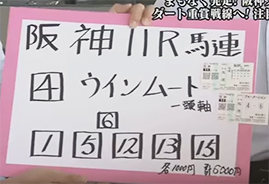 ダート重賞戦線へ!注
阪神11R馬連
4 ウインムート
一頭軸
6
1 5 12 13 15
各1000円 計6000円